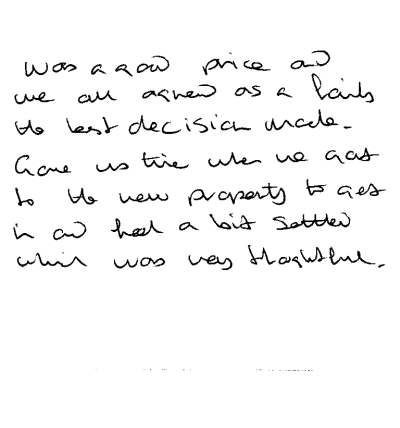 Was a good price and
we all agreed as a family
the best decision made.
Gave us time when we got
to the new property to get
in and feel a bit settled
which was very thoughtful.